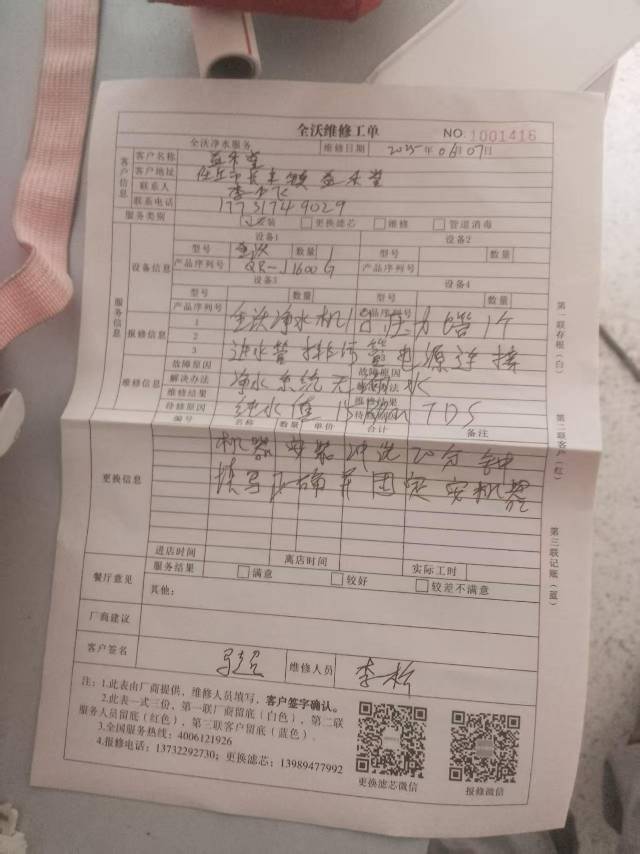 全沃维修工单
NO. 1001416
全沃净水服务 维修日期 2025年06月07日
客户信息
客户名称 益禾堂
客户地址 益禾堂
联系人 李
联系电话 17731749029
服务类别 安装 更换滤芯 维修 管道消毒
服务信息
设备信息
设备1 设备2
型号 全沃 数量 1 型号 数量
产品序列号 QR-J1600G 产品序列号
设备3 设备4
型号 数量 型号 数量
产品序列号 产品序列号
报修信息
1 全沃净水机1台压力管1个
2
3 进水管排污管电源连接
维修信息
故障原因 故障原因
解决办法 净水系统无漏水 解决办法
维修结果 维修结果
待修原因 纯水值 TDS 待修原因
编号 名称 数量 单价 合计 备注
更换信息
机器安装冲洗20分钟
固定安机器
进店时间 离店时间 实际工时
餐厅意见
服务结果 满意 较好 较差不满意
其他：
厂商建议
客户签名 维修人员 李
注：1.此表由厂商提供，维修人员填写，客户签字确认。
2.此表一式三份，第一联厂商留底（白色），第二联
服务人员留底（红色），第三联客户留底（蓝色）.
3.全国服务热线：4006121926
4.报修电话：13732292730；更换滤芯：13989477992
更换滤芯微信
报修微信
第一联存根（白）
第二联客户（红）
第三联记账（蓝）